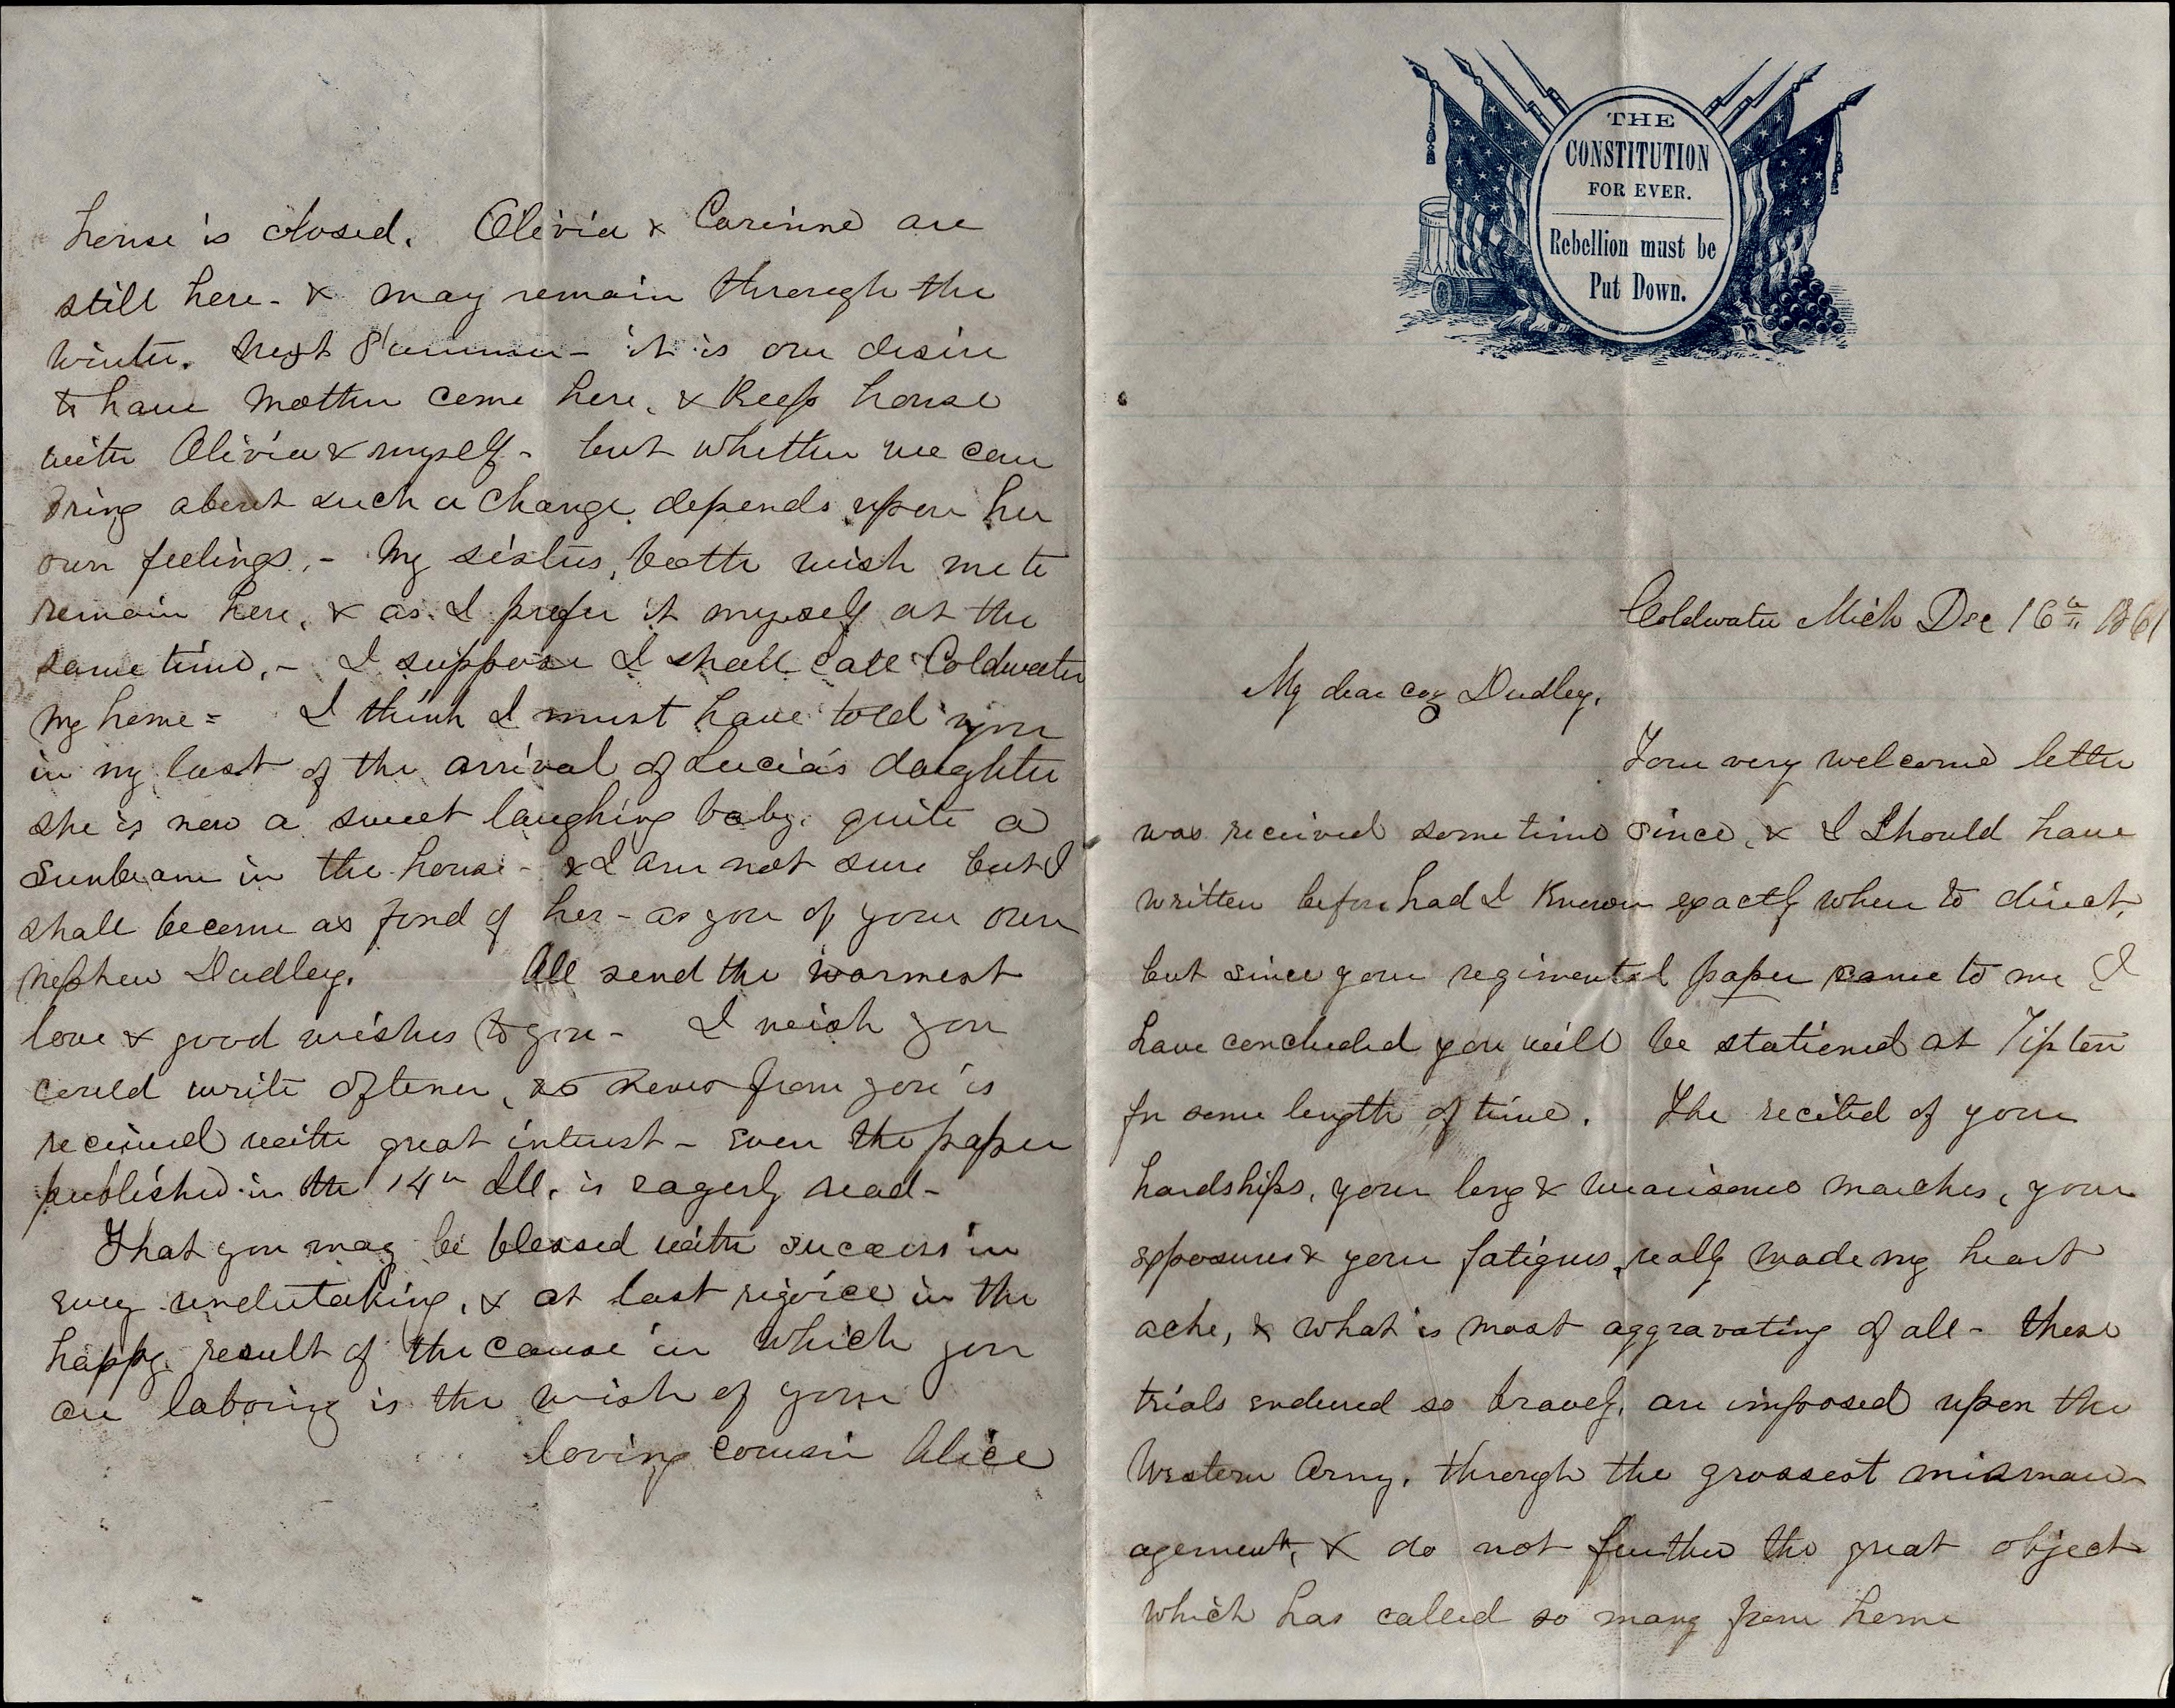 THE
CONSTITUTION
FOR EVER.
Rebellion must be
Put Down.
Coldwater Mich Dec 16th 1861
My dear coz Dudley.
Your very welcome letter
was received some time since, & I should have
written before had I known exactly where to direct,
but since your regimental paper came to me I
have concluded you will be stationed at Tipton
for some length of time. The recital of your
hardships, your long & wearisome marches, your
exposures & your fatigues, really made my heart
ache, & what is most aggravating of all - these
trials endured so bravely, are imposed upon the
Western Army, through the grossest misman-
agement, & do not further the great object
which has called so many from home
house is closed. Olivia & Corinne are
still here - & may remain through the
winter. Next Summer - it is our desire
to have Mother come here, & Keep house
with Olivia & myself - but whether we can
bring about such a change depends upon her
own feelings. - My sisters, both wish me to
remain here, & as I prefer it myself at the
same time, - I suppose I shall call Coldwater
my home = I think I must have told you
in my last of the arrival of Lucia's daughter
she is now a sweet laughing baby. quite a
Sunbeam in the house - & I am not sure but I
shall become as fond of her - as you of your own
nephew Dudley. All send the warmest
love & good wishes to you - I wish you
could write oftener, as news from you is
received with great interest - even the paper
published in the 14th Ill. is eagerly read -
That you may be blessed with success in
every undertaking, & at last rejoice in the
happy result of the cause in which you
are laboring is the wish of your
loving cousin Alice